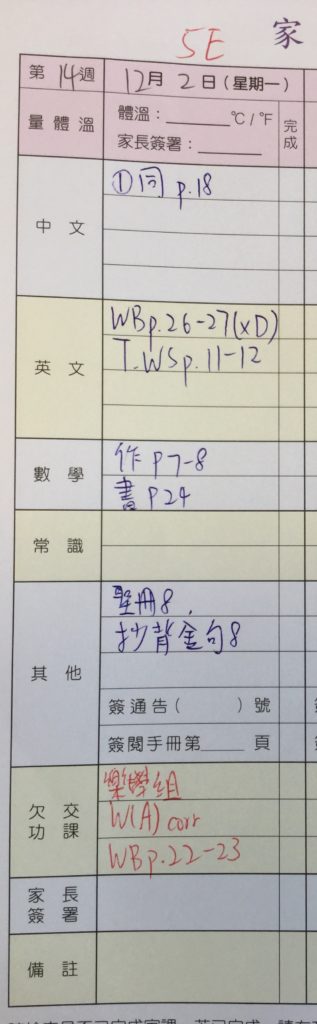 5E 家
第14週 12月2日(星期一)
量體溫 體溫：______℃/℉ 完成
家長簽署：______
中文 ①同 p.18
英文 WBp.26-27(xD)
T.WSp.11-12
數學 作 P7-8
書 P24
常識
其他 聖冊8.
抄背金句8
簽通告( )號
簽閱手冊第____頁
欠交功課 樂學組
W(A) corr
WBp.22-23
家長簽署
備註